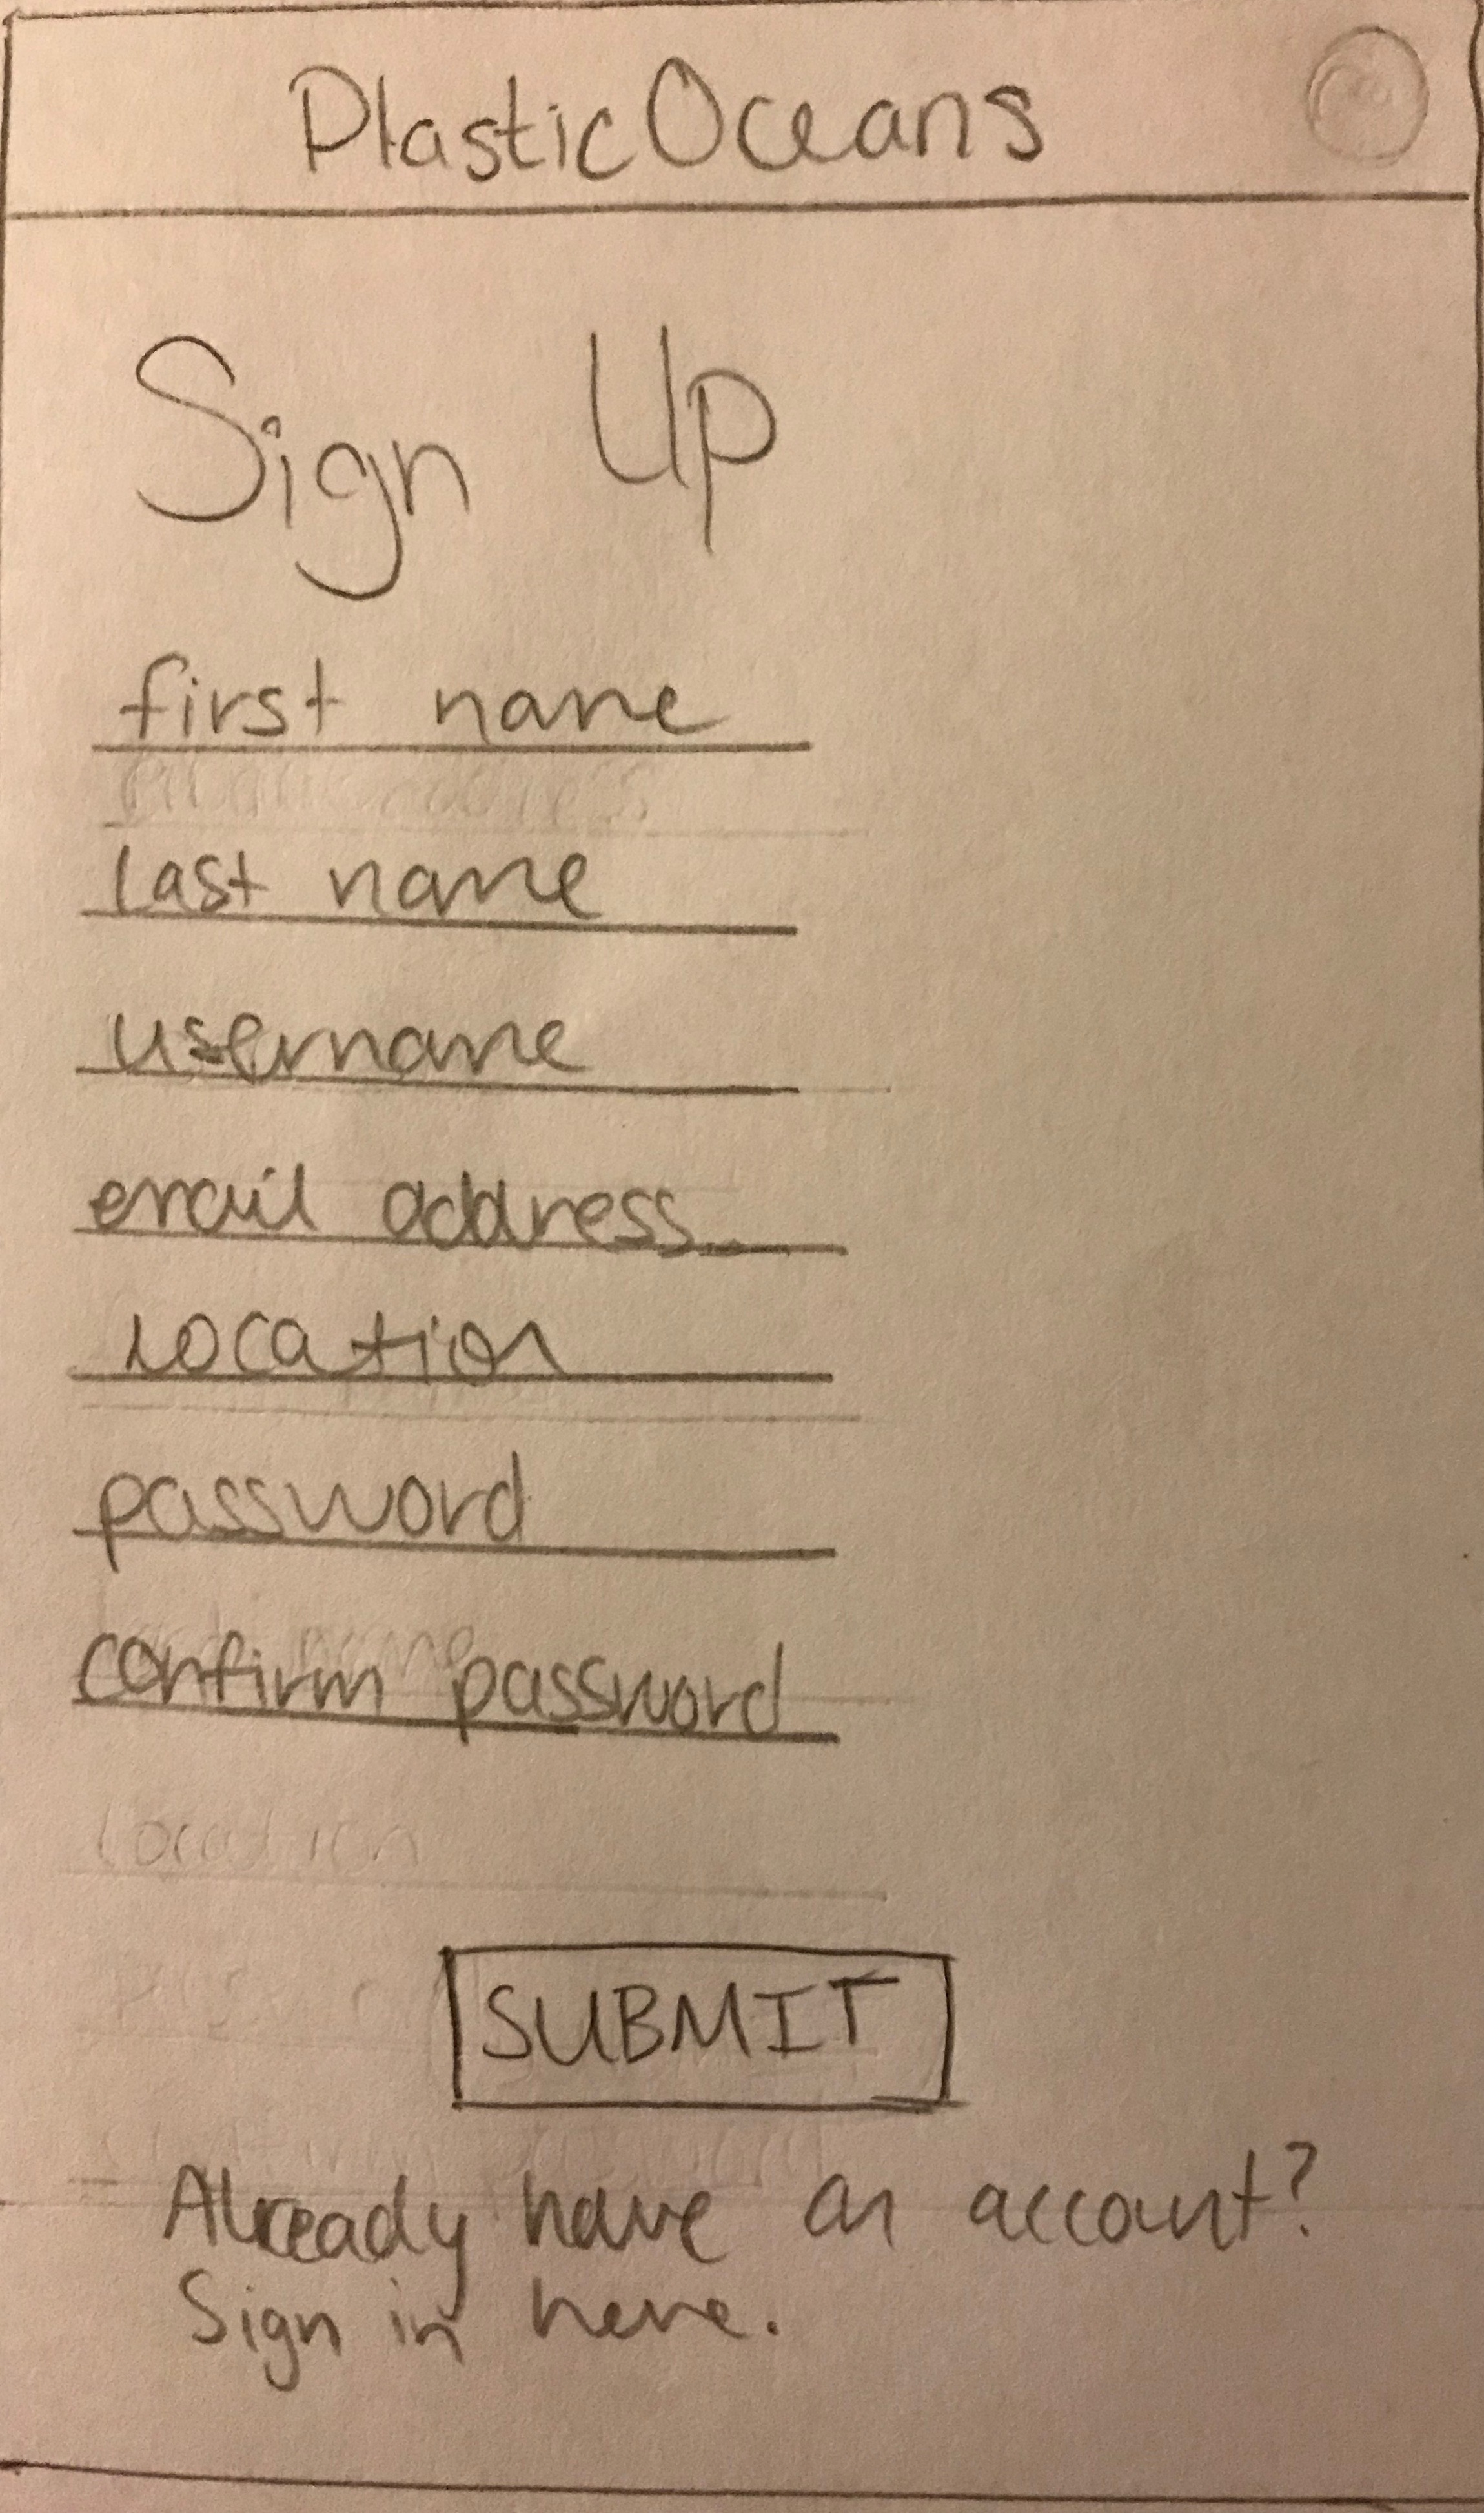 Plastic Oceans
Sign Up
first name
last name
username
email address
location
password
confirm password
location
SUBMIT
Already have an account?
Sign in here.